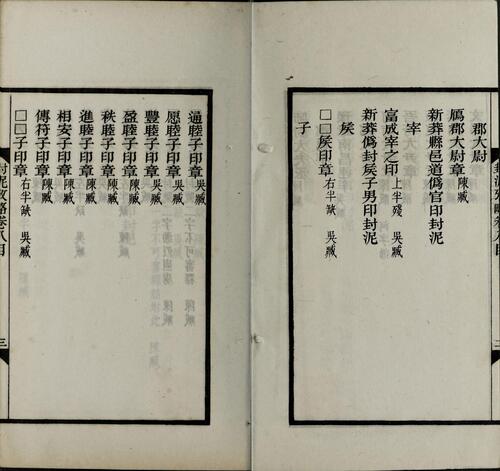 郡大尉
鴈郡大尉章陳臧
新莽縣邑道僞官印封泥
宰
富成宰之印上半殘 吳臧
新莽僞封矦子男印封泥
矦
□□矦印章右半缺 吳臧
子
通睦子印章吳臧
愿睦子印章陳臧
豐睦子印章吳臧
盈睦子印章陳臧
秩睦子印章陳臧
進睦子印章陳臧
相安子印章陳臧
傳符子印章陳臧
□□子印章右半缺 吳臧
封泥攷略卷八目
三